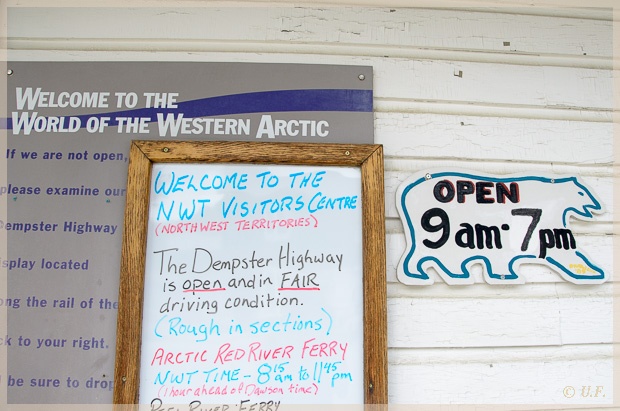 WELCOME TO THE
WORLD OF THE WESTERN ARCTIC
If we are not open,
please examine our
Dempster Highway
splay located
ong the rail of the
ck to your right.
be sure to drop
WELCOME TO THE
NWT VISITORS CENTRE
(NORTHWEST TERRITORIES)
The Dempster Highway
is open and in FAIR
driving condition.
(Rough in sections)
ARCTIC RED RIVER FERRY
NWT TIME - 8 15 am to 11 45 pm
(1 hour ahead of Dawson time)
PEEL RIVER FERRY
OPEN
9am - 7pm
© U.F.